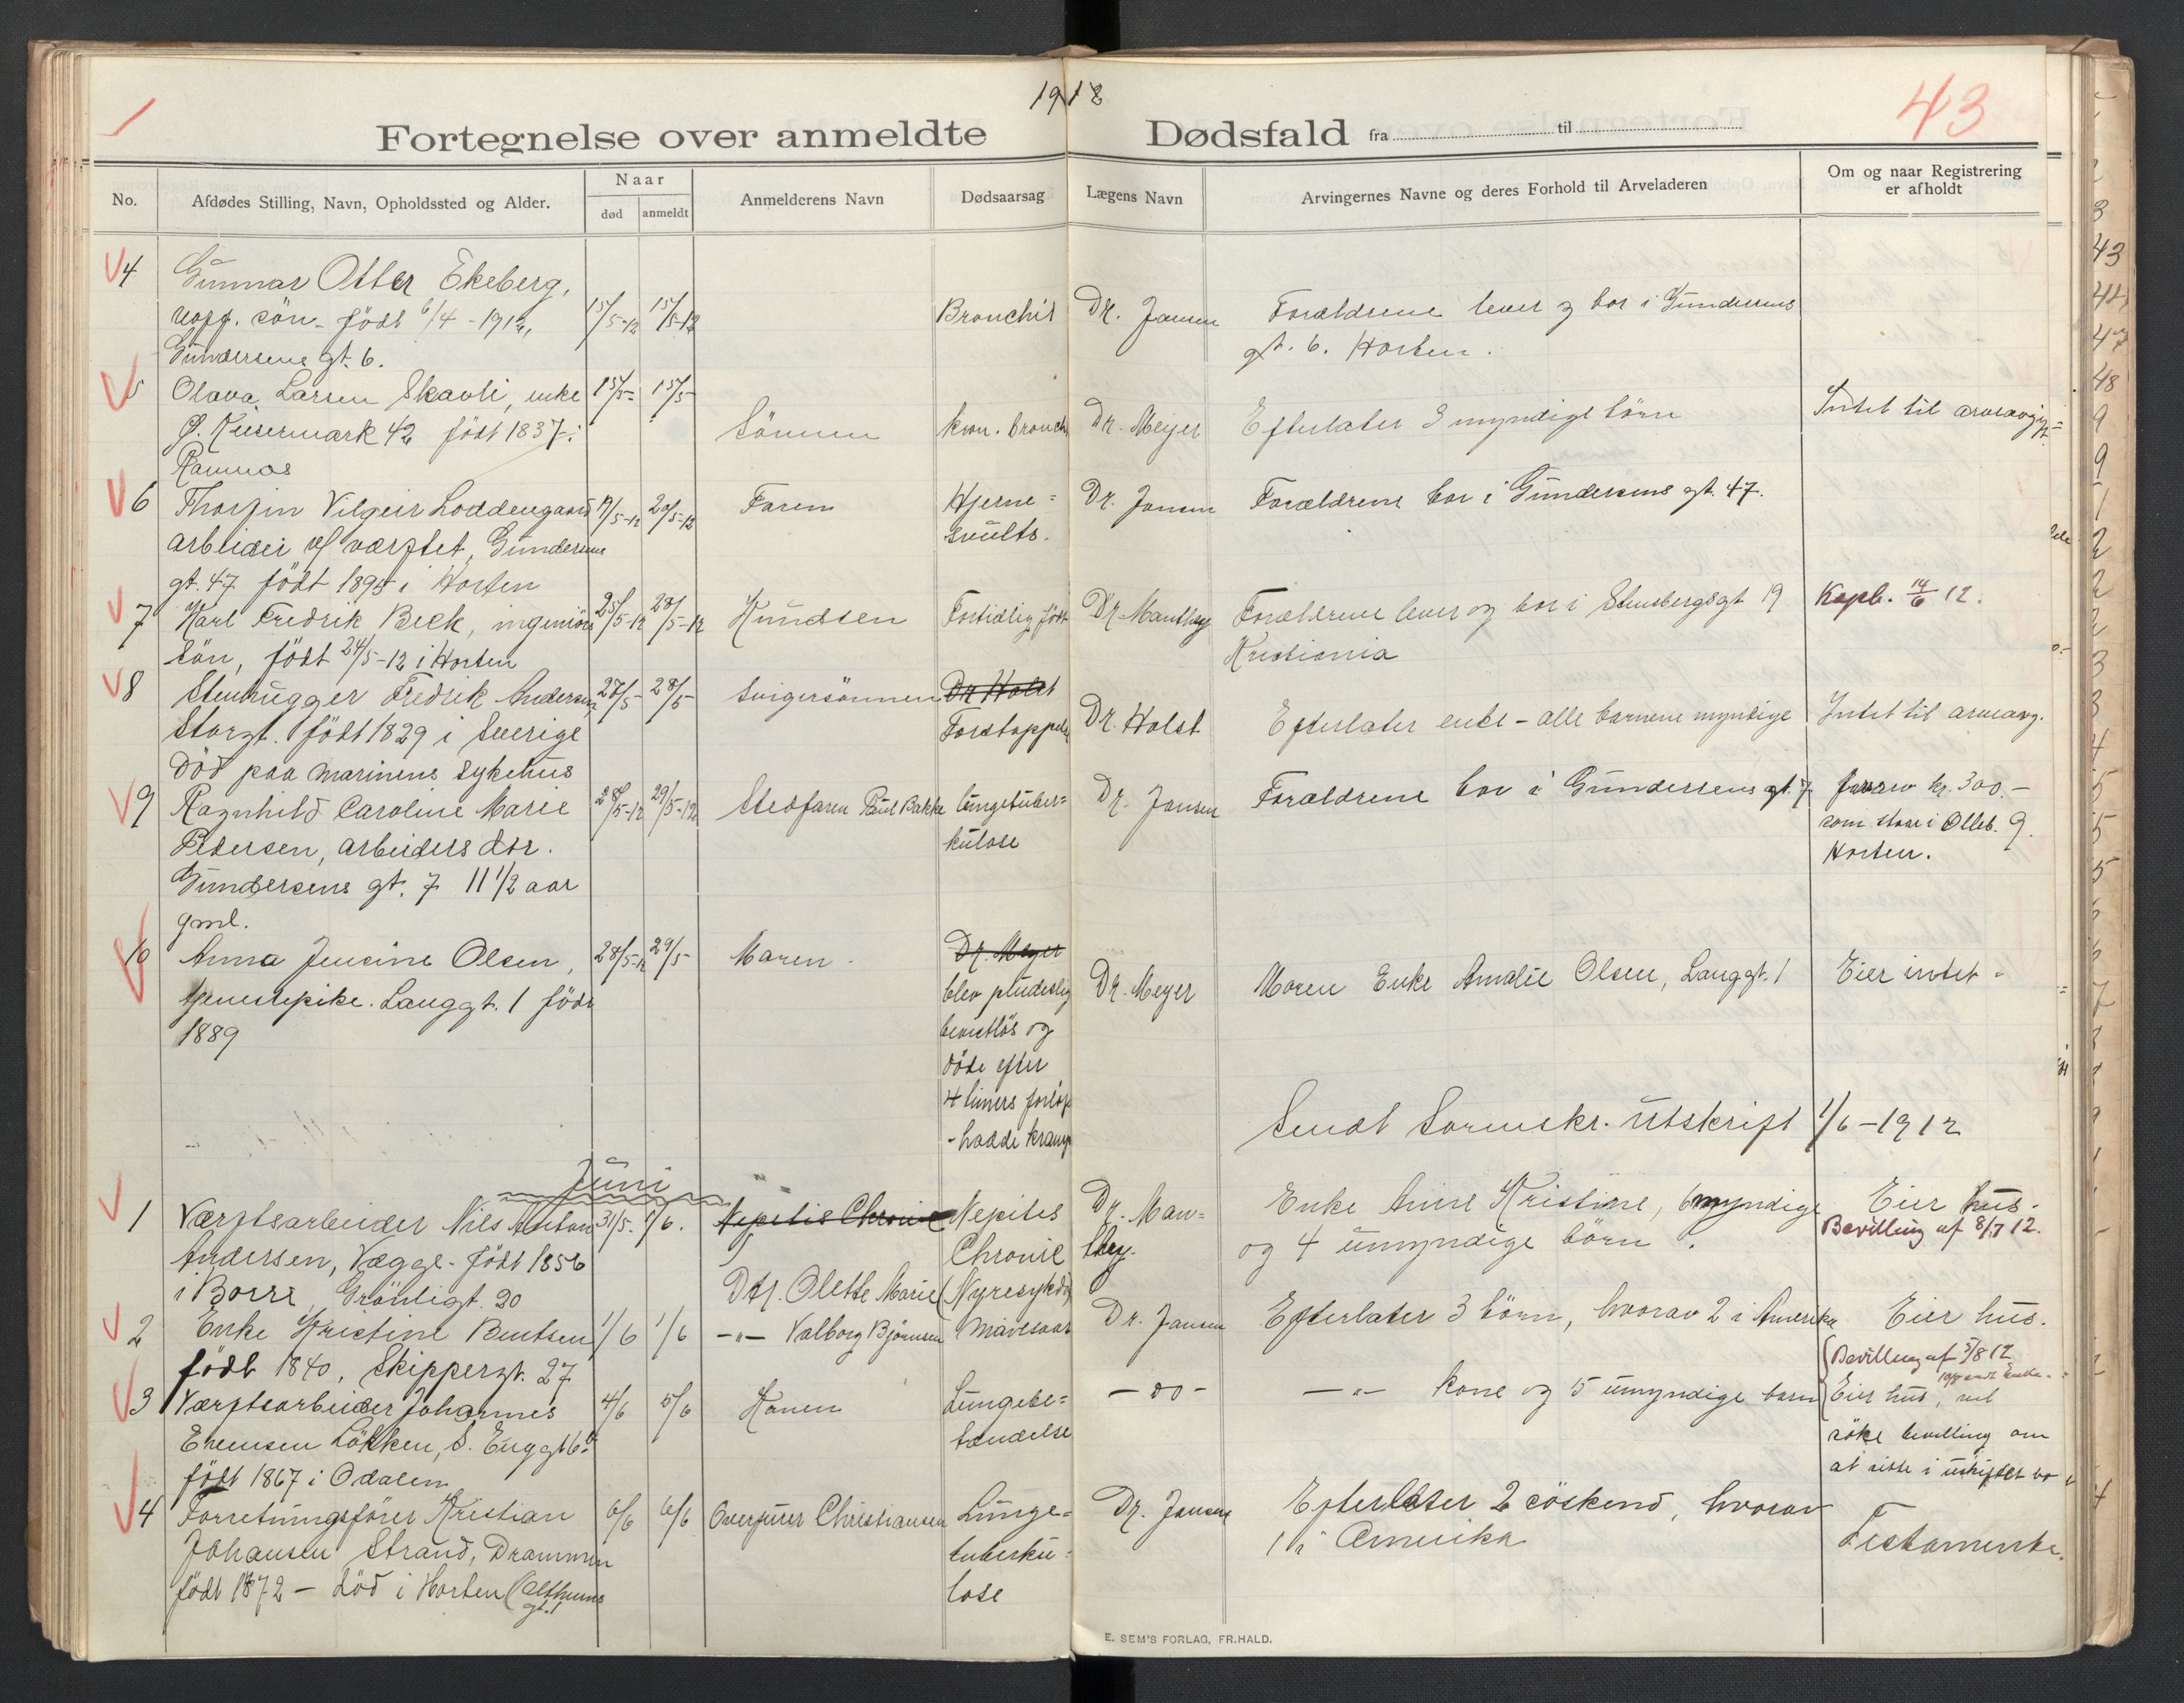 1912
43
Fortegnelse over anmeldte Dødsfald fra til
No.
Afdødes Stilling, Navn, Opholdssted og Alder.
Naar
død anmeldt
Anmelderens Navn
Dødsaarsag
Lægens Navn
Arvingernes Navne og deres Forhold til Arveladeren
Om og naar Registrering
er afholdt
4 Gunnar Otter Ekeberg,
sön - födt 6/4-1912,
Gundersens gt. 6.
15/5-12 15/5-12
Bronchit
Dr. Jansen
Forældrene lever og bor i Gundersens
gt. 6. Horten.
5 Olava Larsen Skavli, enke
Ø. Keisermark 42 födt 1837 i
Ramnæs
15/5- 15/5-
Sönnen
kron. bronch
Dr. Meyer
Efterlater 3 myndige börn
Intet til arveavgift
6 Thorfin Vilgeir Loddengaard
arbeider v/ værftet, Gundersens
gt. 47 födt 1895 i Horten
19/5-12 20/5-12
Faren
Hjerne=
svulst.
Dr. Jansen
Forældrene bor i Gundersens gt. 47.
7 Karl Fredrik Beck, ingeniörs
sön, födt 24/5-12 i Horten
25/5-12 28/5-12
Knudsen
Fortidlig födt
Dr. Manthey
Forældrene lever og bor i Stensbergsgt 19
Kristiania
Kopb. 14/6 12.
8 Stenhugger Fredrik Andersen,
Storgt. 1 födt 1829 i Sverige
död paa Marinens Sykehus
27/5- 28/5-
Svigersönnen
Dr Holst
Forstoppelse
Dr. Holst
Efterlater enke - alle barnene myndige
Intet til arveavg.
9 Ragnhild Caroline Marie
Pedersen, arbeiders dtr.
Gundersens gt. 7 11 1/2 aar
gml.
28/5-12 29/5-12
Stedfaren Paul Bakke
lungetuber=
kulose
Dr. Jansen
Forældrene bor i Gundersens gt. 7
kr. 300.-
som staar i
Horten.
10 Anna Jensine Olsen,
tjenestepike. Langgt. 1 födt
1889
28/5-12 29/5-
Moren.
Dr. Meyer
blev pludselig
bevistlös og
döde efter
4 timers forlöp
- hadde kramp
Dr. Meyer
Moren Enke Amalie Olsen, Langgt. 1
Eier intet -
Sendt Sorenskr. utskrift 1/6-1912
Juni
1 Værftsarbeider Nils Anton
Andersen, Vægge. födt 1856
i Borre, Grönligt. 20
31/5. 1/6.
Nepitis Chronic
Dtr. Olette Marie
Nepites
Chronic
(Nyresykdom)
Dr. Man=
they.
Enke Anne Kristine, 6 myndige
og 4 umyndige börn.
Eier hus.
Bevilling af 8/7 12.
2 Enke Kristine Bentsen
födt 1840, Skippergt. 27
1/6 1/6
-"- Valborg Björnsen
Mavesaar
Dr. Jansen
Efterlater 3 börn, hvorav 2 i Amerika
Eier hus.
3 Værftsarbeider Johannes
Evensen Løkken, S. Enggt 6b
födt 1867 i Odalen
4/6 5/6
Konen
Lungebe=
tændelse
- do -
-"- kone og 5 umyndige barn
Bevilling af 5/8 12
Eier hus, vil
söke bevilling om
at sitte i uskiftet bo
4 Forretningsförer Kristian
Johansen Strand, Drammen
födt 1872 - död i Horten (Olthuus
gt. 1
6/6 6/6
Overfurer Christiansen
Lunge=
tuberku=
lose
Dr. Jansen
Efterlater 2 söskend, hvorav
1 i Amerika
Testamente.
E. SEM'S FORLAG, FR.HALD.